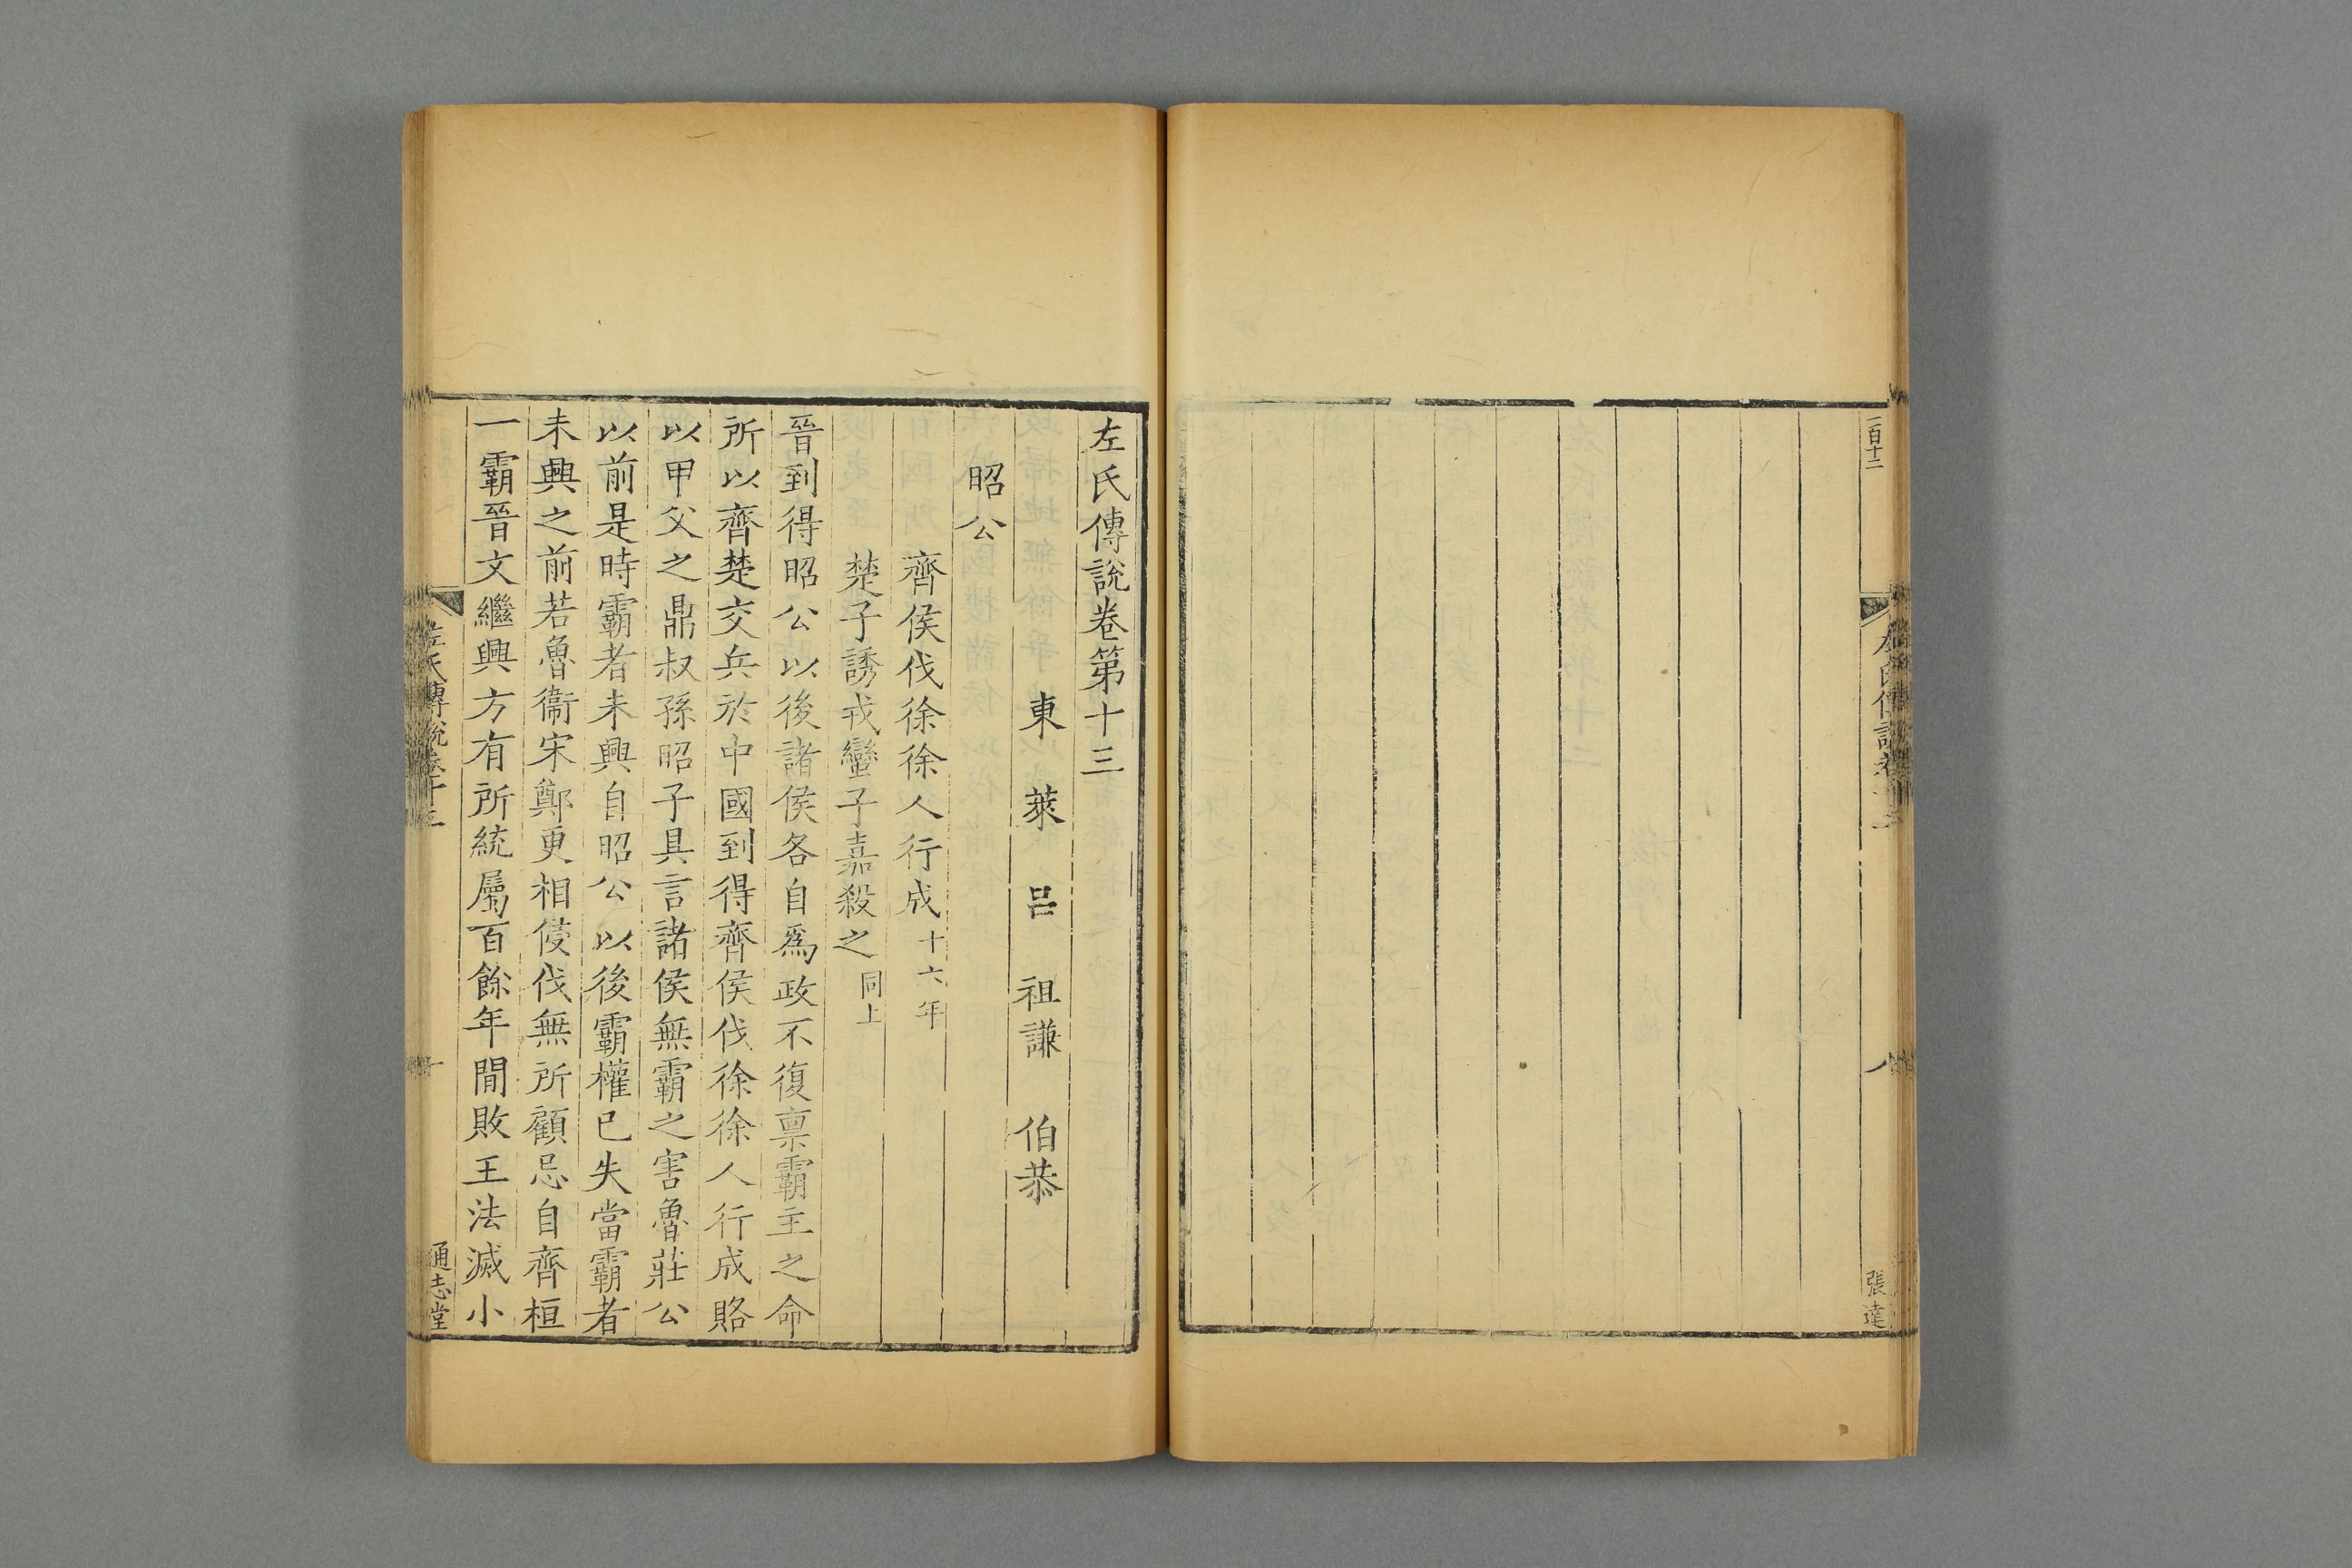 一百十二
左氏傳說卷十二
八
張達
左氏傳說卷第十三
東萊呂祖謙伯恭
昭公
齊侯伐徐徐人行成十六年
楚子誘戎蠻子嘉殺之同上
晉到得昭公以後諸侯各自爲政不復禀霸主之命
所以齊楚交兵於中國到得齊侯伐徐徐人行成賂
以甲父之鼎叔孫昭子具言諸侯無霸之害魯莊公
以前是時霸者未興自昭公以後霸權已失當霸者
未興之前若魯衞宋鄭更相侵伐無所顧忌自齊桓
一霸晉文繼興方有所統屬百餘年閒敗王法滅小
左氏傳說卷十三
一
通志堂